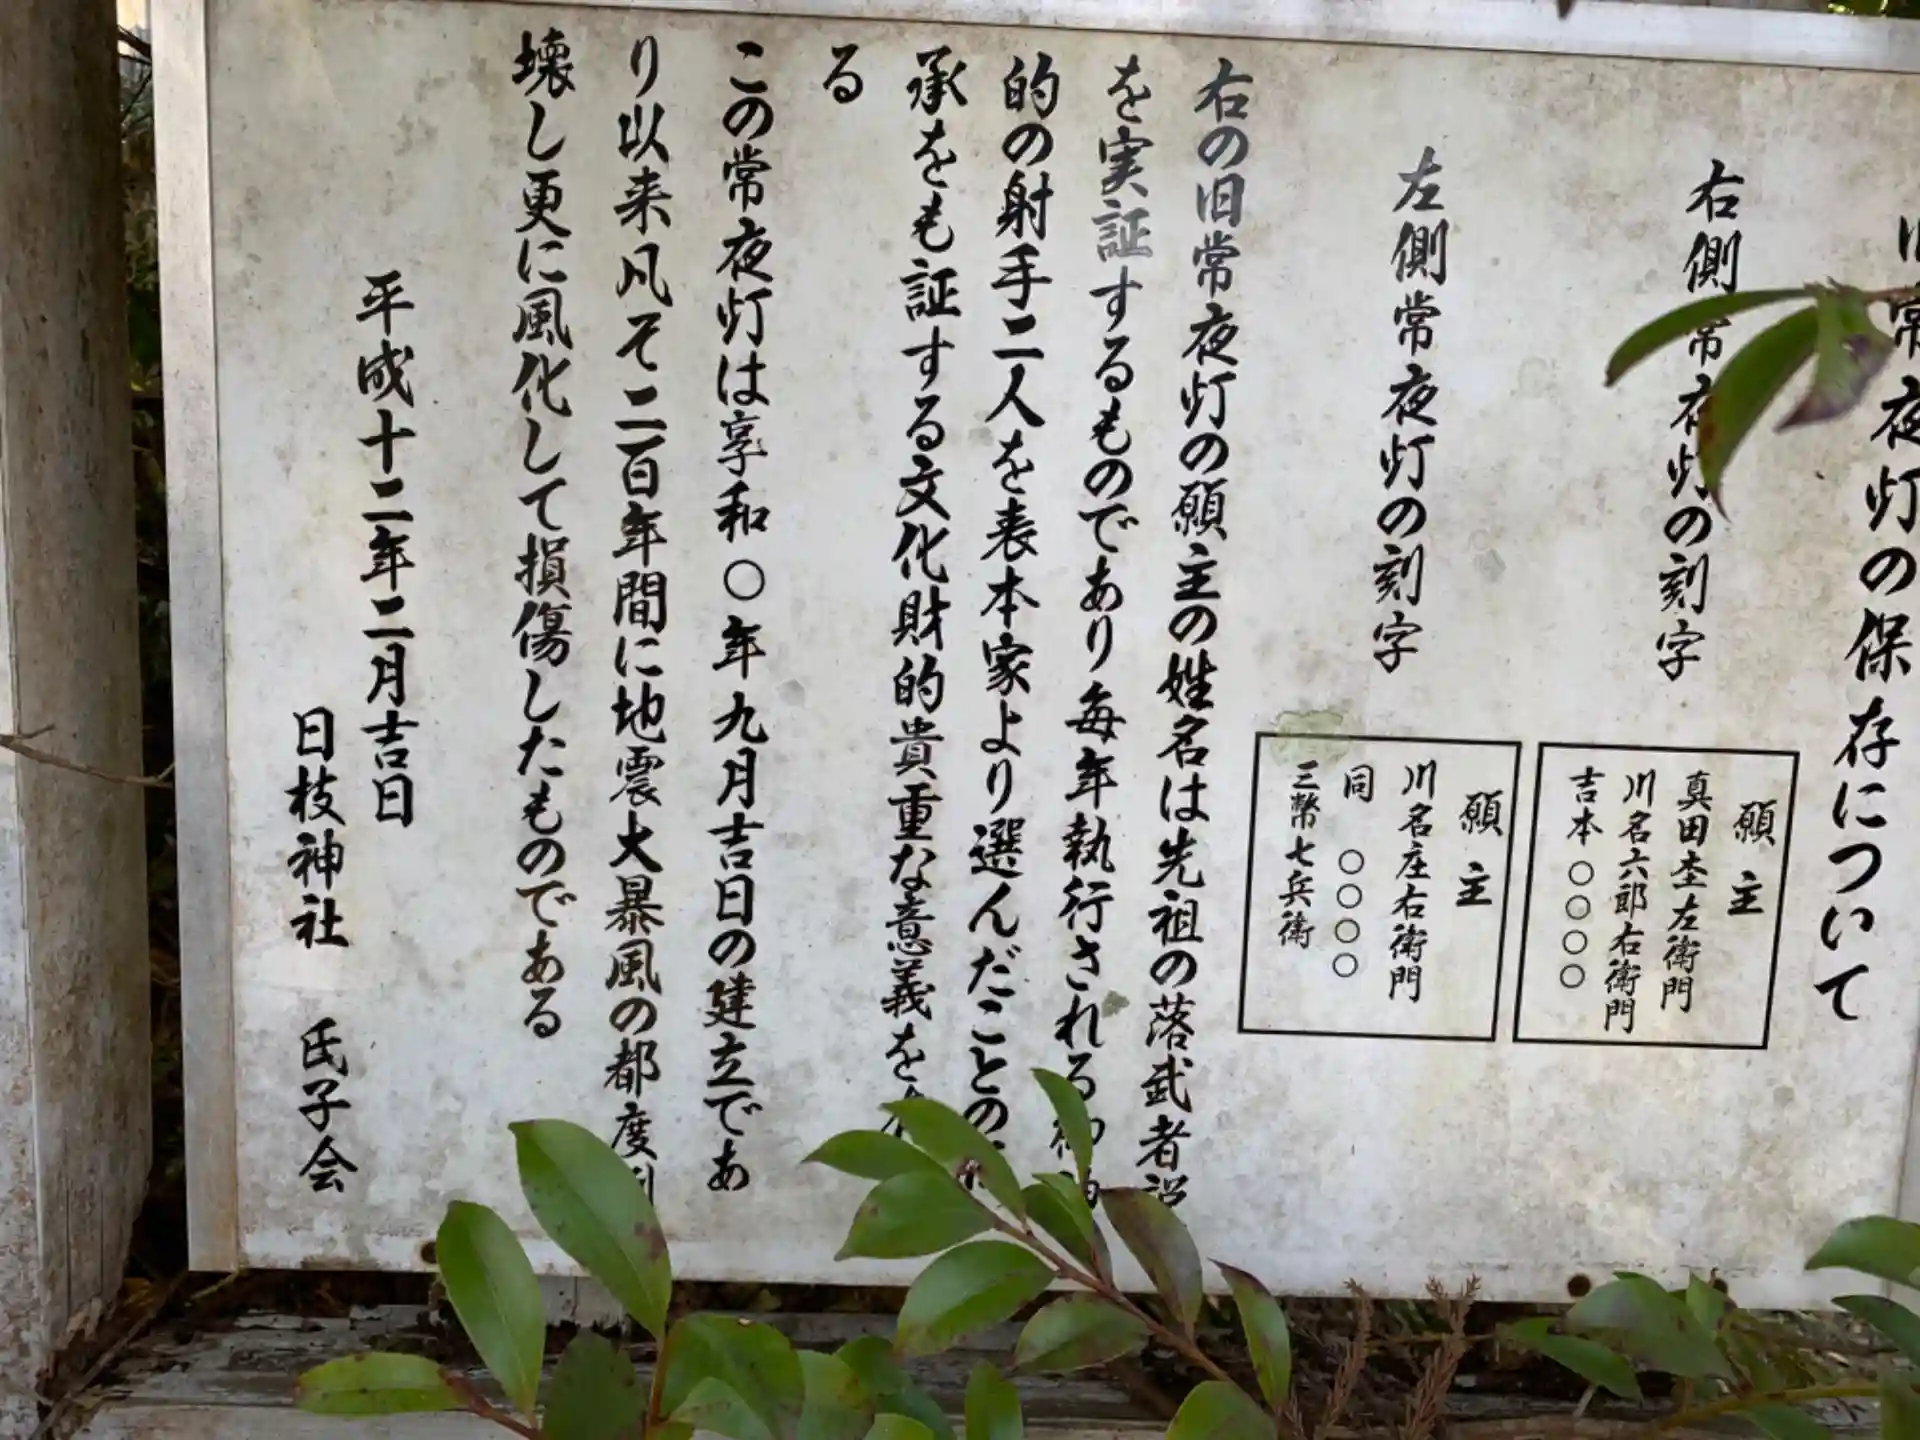 旧常夜灯の保存について
右側常夜灯の刻字
願主
真田杢左衛門
川名六郎右衛門
吉本〇〇〇〇
左側常夜灯の刻字
願主
川名庄右衛門
同 〇〇〇〇
三幣七兵衛
右の旧常夜灯の願主の姓名は先祖の落武者説
を実証するものであり毎年執行される御神
的の射手二人を表本家より選んだことの
承をも証する文化財的貴重な意義を
る
この常夜灯は享和〇年九月吉日の建立であ
り以来凡そ二百年間に地震大暴風の都度倒
壊し更に風化して損傷したものである
平成十二年二月吉日
日枝神社 氏子会